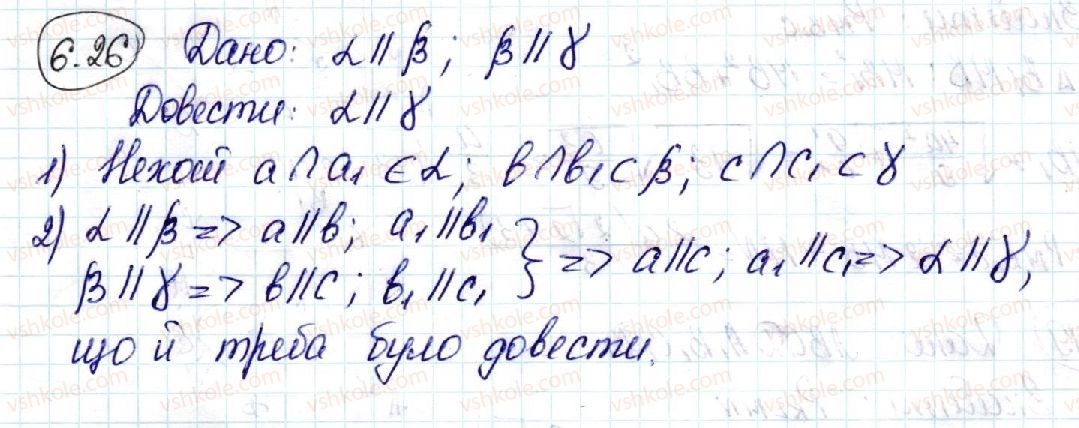 6.26 Дано: α || β; β || γ
Довести: α || γ
1) Нехай a∩a₁ ⊂ α; b∩b₁ ⊂ β; c∩c₁ ⊂ γ
2) α || β => a || b; a₁ || b₁
β || γ => b || c; b₁ || c₁ } => a || c; a₁ || c₁ => α || γ,
що й треба було довести.
vshkole.com